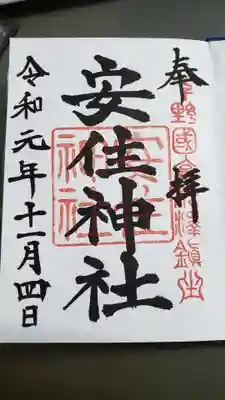 奉拝
安住神社
令和元年十一月四日
安住
神社